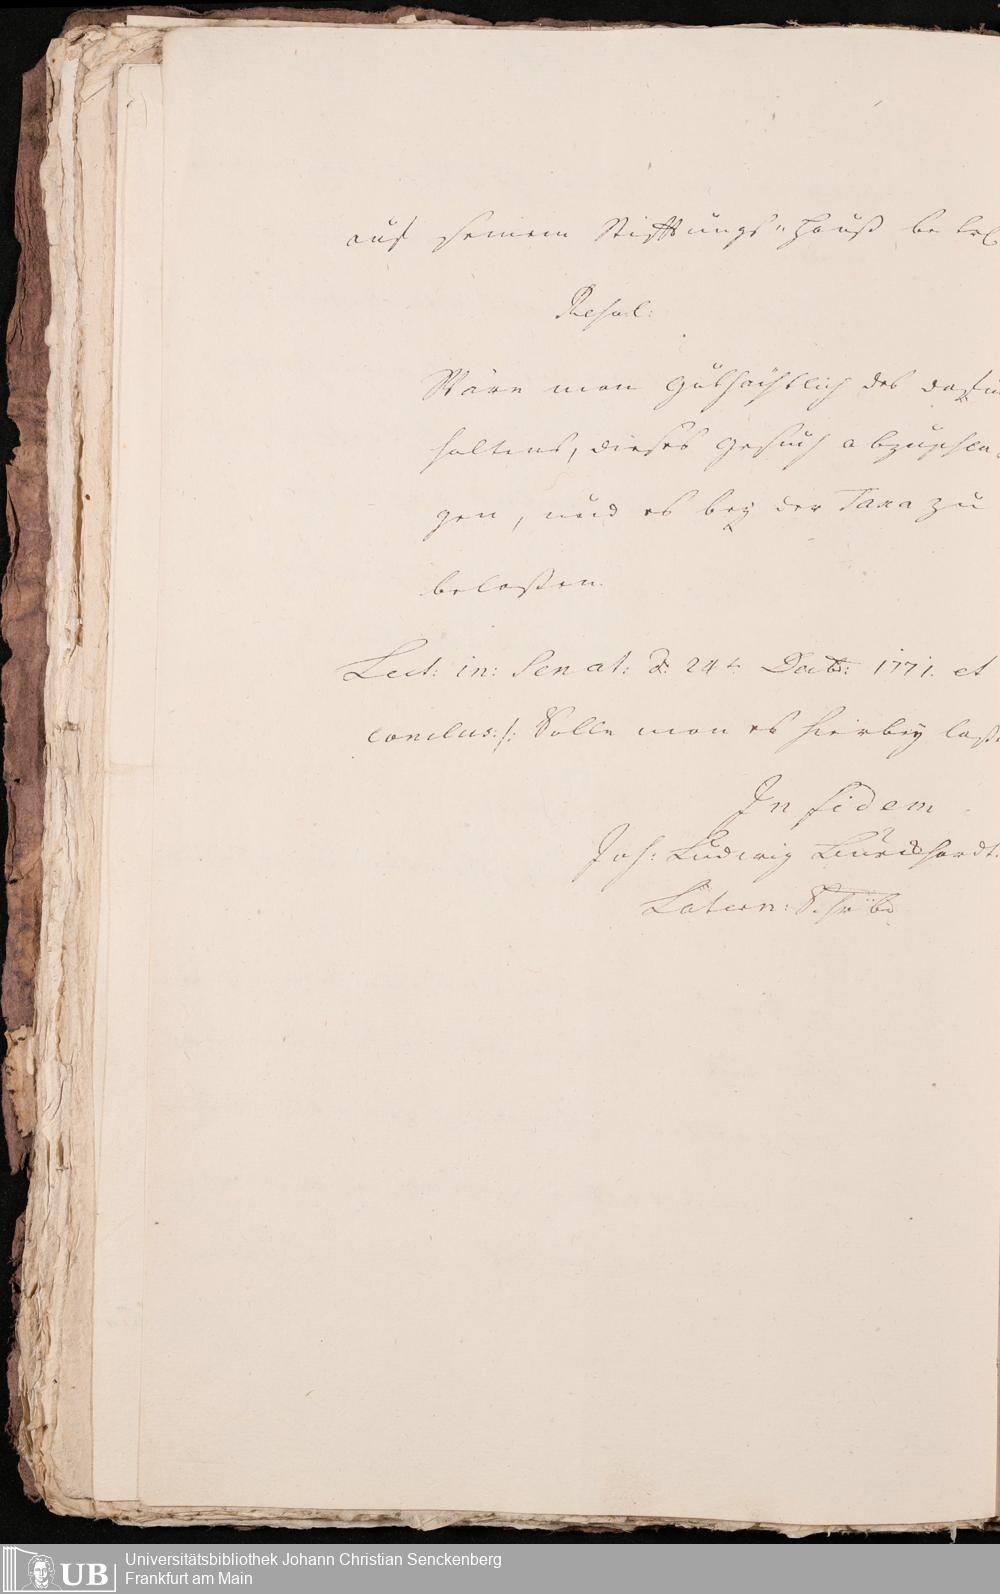 auf seinem Stifftungs-Hauß betr
Resol:
Wäre man gutachtlich des dafür
haltens, dieses gesuch abzuschla-
gen, und es bey der Taxa zu
belaßen.
Lect: in: Senat: d: 24t. Decb: 1771. et
conclus: /: Solle man es hierbey laß
In fidem
Joh: Ludwig Burckhardt
Latern:
Universitätsbibliothek Johann Christian Senckenberg
Frankfurt am Main
UB